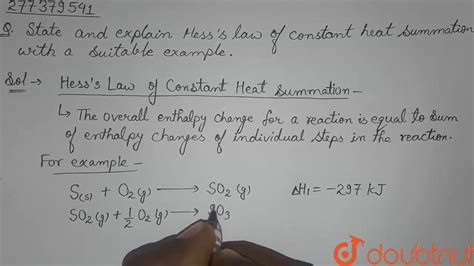 277379541
Q. State and explain Hess's law of constant heat summation
with a suitable example.
Sol → Hess's Law of Constant Heat Summation -
↳ The overall enthalpy change for a reaction is equal to sum
of enthalpy changes of individual steps in the reaction.
For example -
S(s) + O₂(g) → SO₂(g) ΔH₁ = -297 KJ
SO₂(g) + 1/2 O₂(g) → SO₃
doubtnut